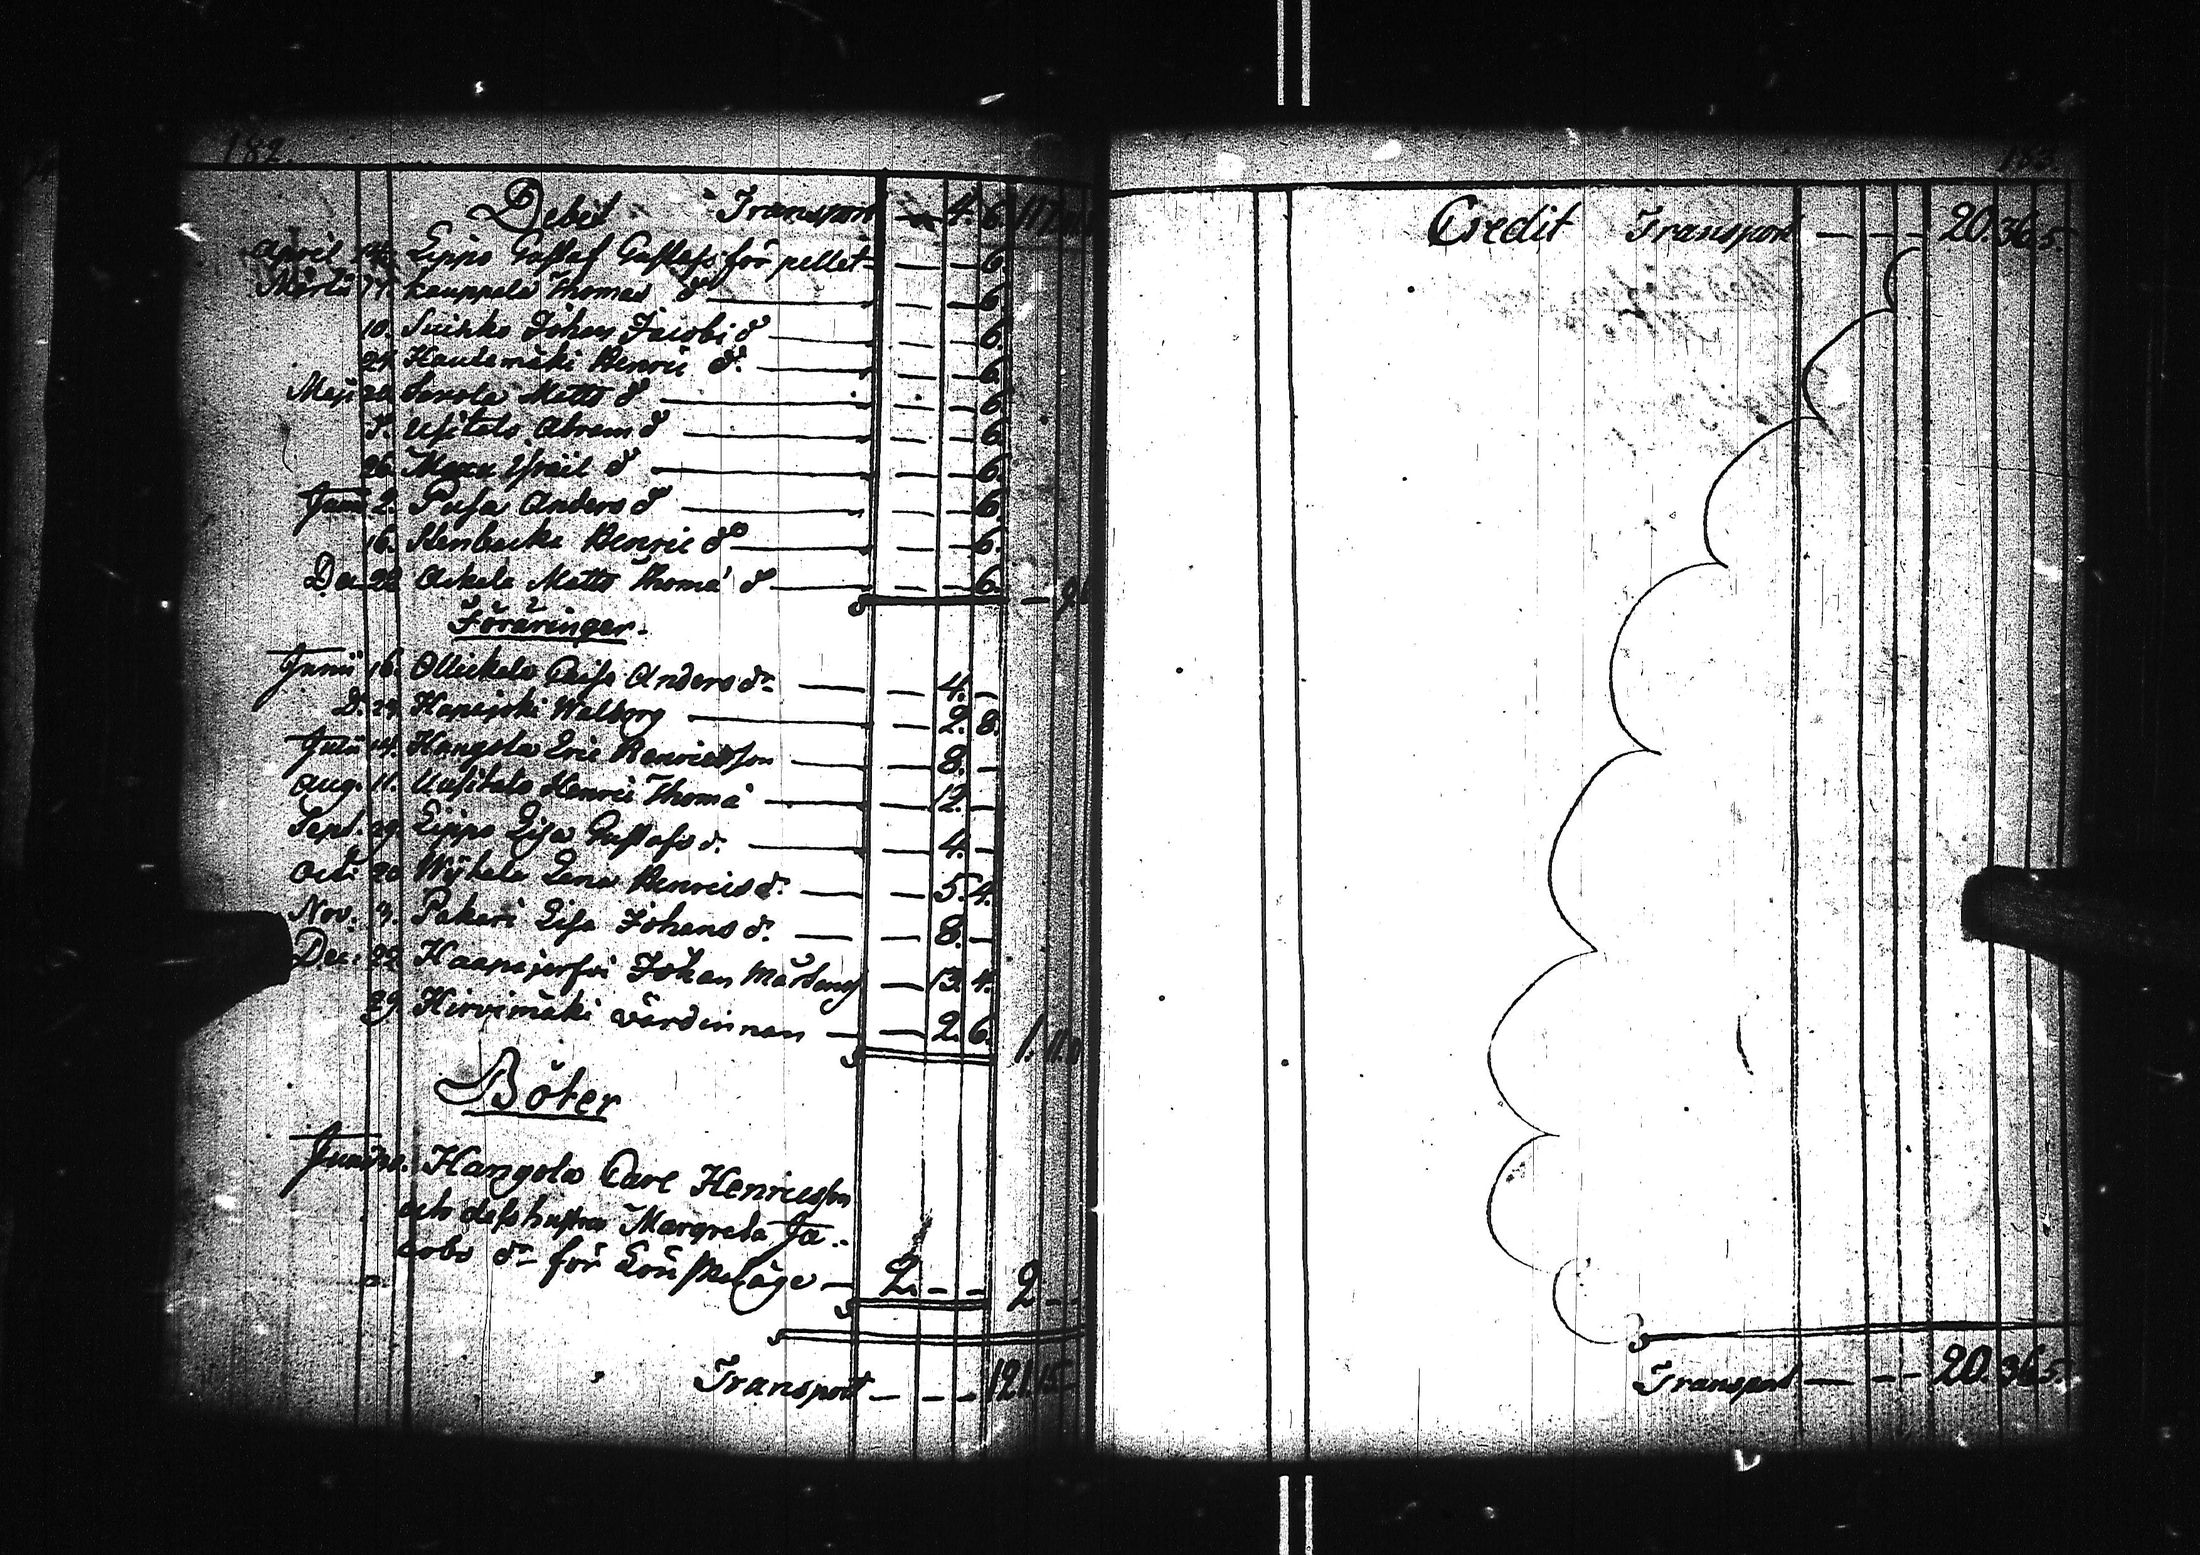 182.
Debet Transport — 4. 6. 117
April 14. Lippo Gustaf Gustafss för pellet — — 6.
Martii Kauppela Thomas d° — — 6.
10. Johan Jacobi d° — — 6.
24. Hautamäki Henric d° — — 6.
Maji 20. Matts d° — — 6.
Abram d° — — 6.
26. d° — — 6.
Junii 2. Pusa Anders d° — — 6.
16. Stenbacka Henric d° — — 6.
Dec. 22 Ackala Matts Thomæ d° — — 6.
Föräringer.
Junii 16. Ollickala Caisa Anders dr — 4. —
D. 24. Walborg — 2. 8.
Julii 14. Kangola Eric Henricsson — 8. —
Aug. 11. Uusitalo Henric Thomæ — 12. —
Sept. 29. Lippo Lisa Gustafs d. — 4. —
Oct. 20 Wÿkala Lena Henrics d. — 5. 4.
Nov. 3. Pakari Lisa Johans d. — 8. —
Dec. 22. Haapojerfvi Johan Mårtens — 13. 4.
29. Hirvimäki värdinnan — 2. 6. 1. 11.
Böter
Junii Kangola Carl Henricsson
och dess hustru Margreta Ja-
cobs dr för Lönskeläge — 2. — — 2 — —
Transport — — — 121. 15.
183.
Credit Transport — — — 20. 36. 5.
Transport — — — 20. 36. 5.